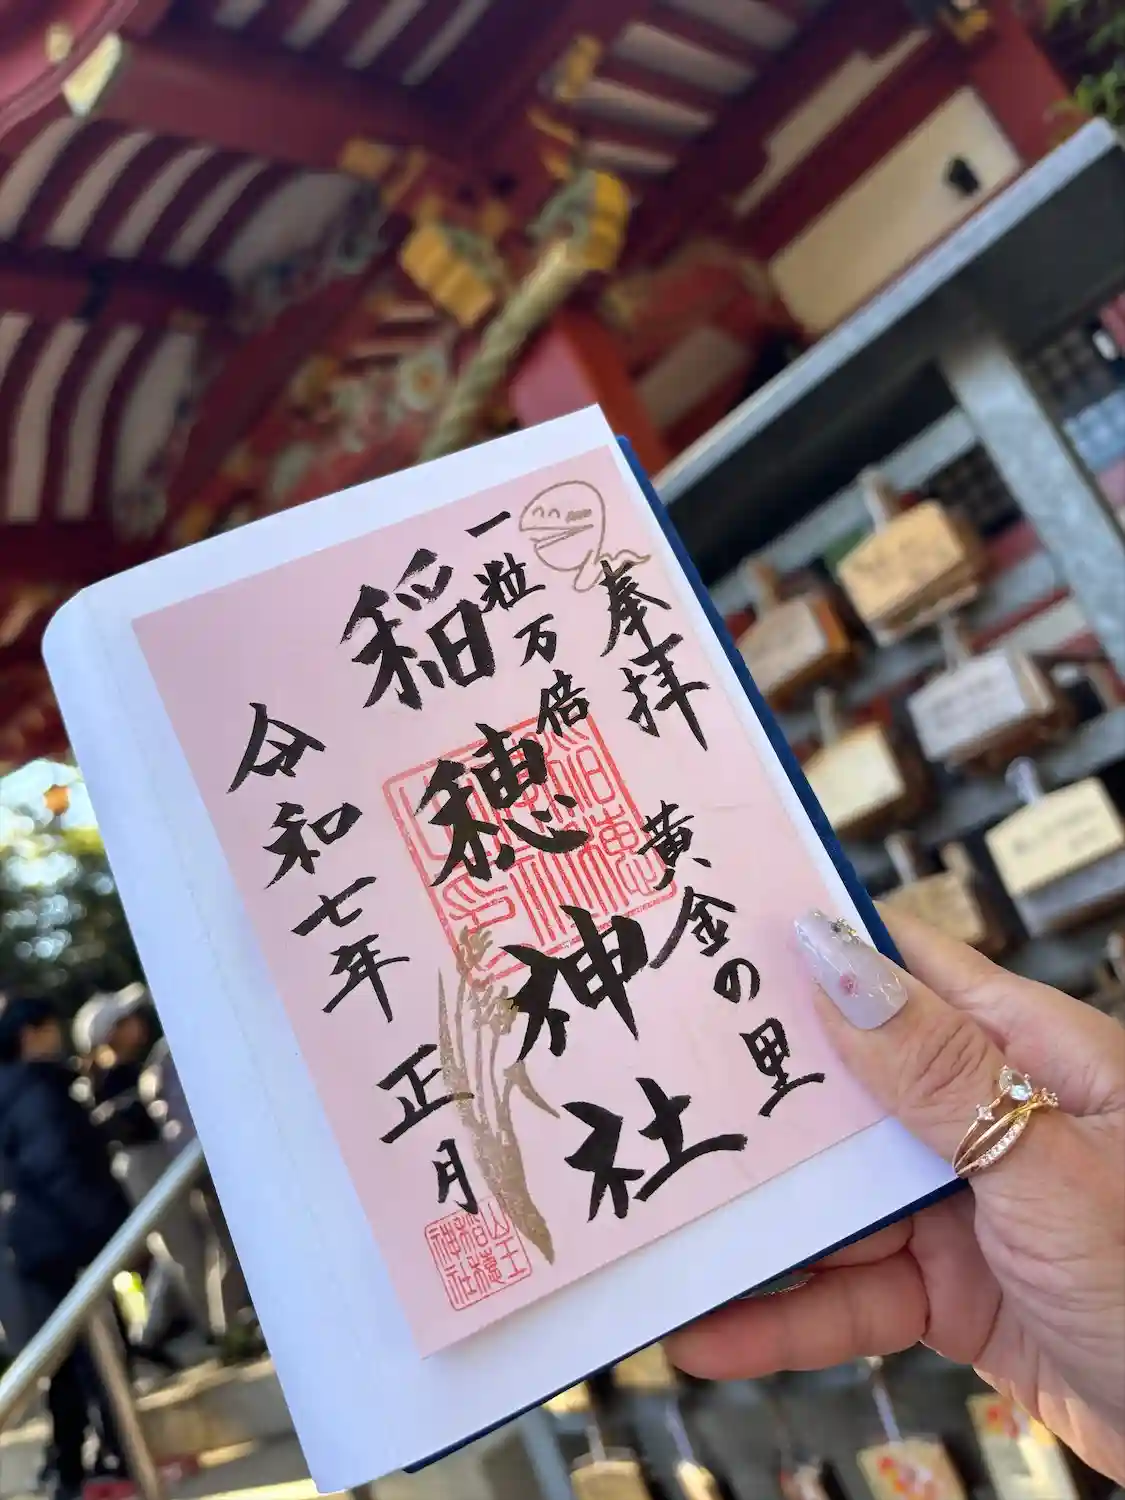 奉拝
黄金の里
一粒万倍
稲穂神社
令和七年正月
山王
稲穂
神社